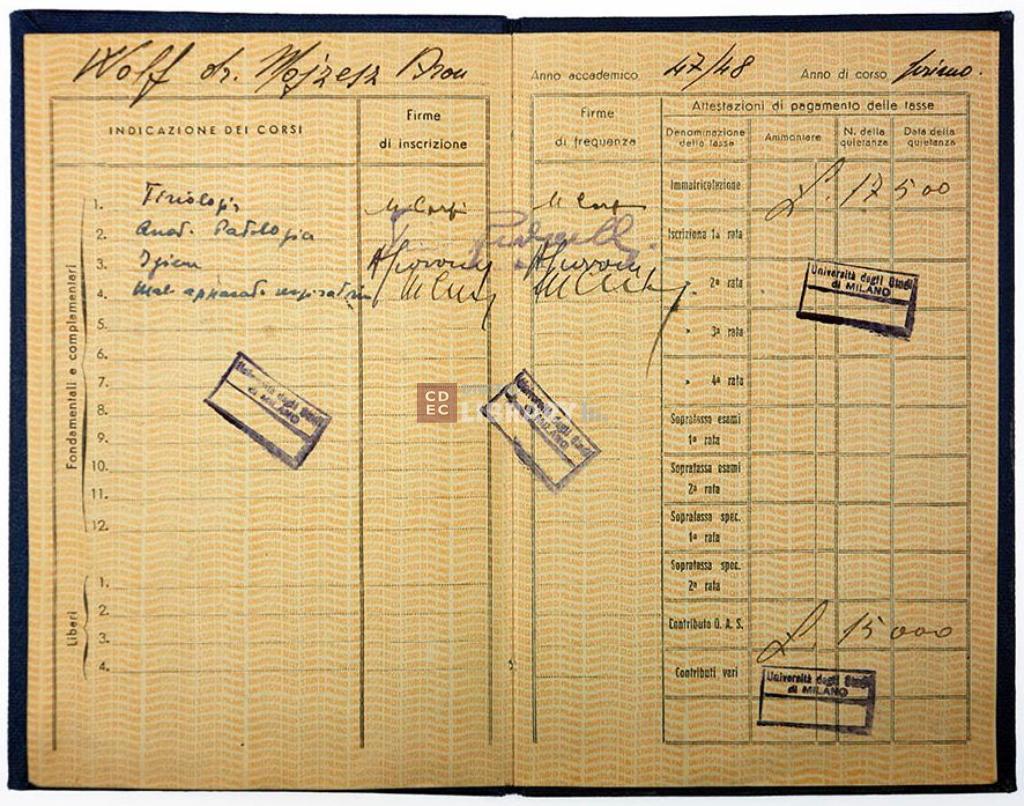 Wolff dr. Mojzesz Aron
INDICAZIONE DEI CORSI
Firme
di inscrizione
Fondamentali e complementari
1. Fisiologia
2. Anat. Patologica
3. Igiene
4. Mal. apparato respiratorio
5.
6.
7.
8.
9.
10.
11.
12.
Liberi
1.
2.
3.
4.
Università degli Studi
di MILANO
CD
EC
Anno accademico 47/48 Anno di corso primo.
Firme
di frequenza
Attestazioni di pagamento delle tasse
Denominazione
della tassa
Ammontare
N. della
quietanza
Data della
quietanza
Immatricolazione L. 17500
Iscrizione 1ª rata
" 2ª rata
" 3ª rata
" 4ª rata
Sopratassa esami
1ª rata
Sopratassa esami
2ª rata
Sopratassa spec.
1ª rata
Sopratassa spec.
2ª rata
Contributo O. A. S. L. 15000
Contributi vari
Università degli Studi
di MILANO
Università degli Studi
di MILANO
Università degli Studi
di MILANO